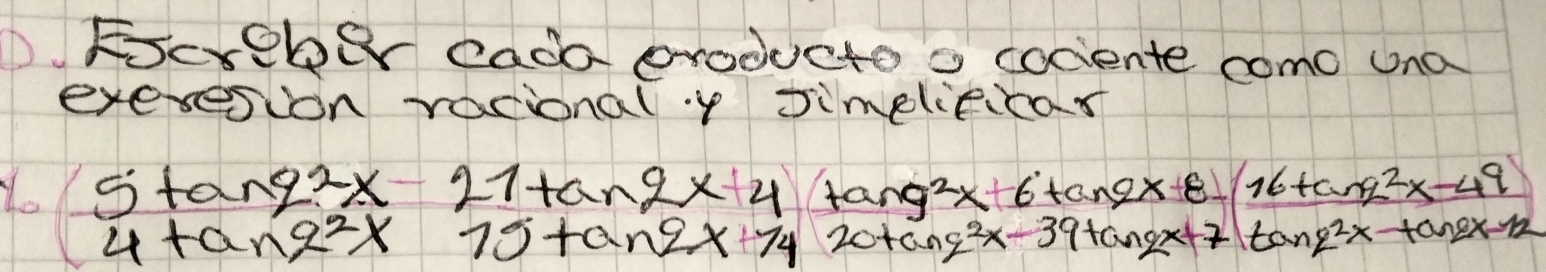 D. Escrebir cada producto o cociente como una
expresion racional y simplificar
1. (5 tang²x - 21 tangx + 4 / 4 tang²x 15 tangx + 14) (tang²x + 6 tangx + 8 / 20 tang²x - 39 tangx + 7) (16 tang²x - 49 / tang²x - tangx - 12)